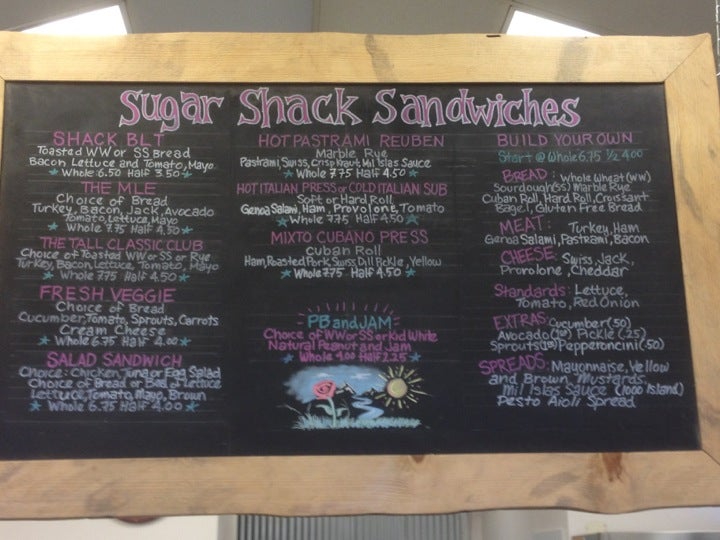 Sugar Shack Sandwiches
SHACK BLT
Toasted WW or SS Bread
Bacon Lettuce and Tomato, Mayo
Whole 6.50 Half 3.50
THE MLE
Choice of Bread
Turkey, Bacon, Jack, Avocado
Tomato, Lettuce, Mayo
Whole 7.75 Half 4.50
THE TALL CLASSIC CLUB
Choice of Toasted WW or SS or Rye
Turkey, Bacon, Lettuce, Tomato, Mayo
Whole 7.75 Half 4.50
FRESH VEGGIE
Choice of Bread
Cucumber, Tomato, Sprouts, Carrots
Cream Cheese
Whole 6.75 Half 4.00
SALAD SANDWICH
Choice: Chicken, Tuna or Egg Salad
Choice of Bread or Bed of Lettuce
Lettuce, Tomato, Mayo, Brown
Whole 6.75 Half 4.00
HOT PASTRAMI REUBEN
Marble Rye
Pastrami, Swiss, Crisp Kraut, Mil Islas Sauce
Whole 7.75 Half 4.50
HOT ITALIAN PRESS or COLD ITALIAN SUB
Soft or Hard Roll
Genoa Salami, Ham, Provolone, Tomato
Whole 7.75 Half 4.50
MIXTO CUBANO PRESS
Cuban Roll
Ham, Roasted Pork, Swiss, Dill Pickle, Yellow
Whole 7.75 Half 4.50
PB and JAM
Choice of WW or SS or Kid White
Natural Peanut and Jam
Whole 4.00 Half 2.25
BUILD YOUR OWN
Start @ Whole 6.75 1/2 4.00
BREAD: Whole Wheat (WW)
Sourdough (SS) Marble Rye
Cuban Roll, Hard Roll, Croissant
Bagel, Gluten Free Bread
MEAT: Turkey, Ham
Genoa Salami, Pastrami, Bacon
CHEESE: Swiss, Jack,
Provolone, Cheddar
Standards: Lettuce,
Tomato, Red Onion
EXTRAS: Cucumber (.50)
Avocado Pickle (.25)
Sprouts Pepperoncini (.50)
SPREADS: Mayonnaise, Yellow
and Brown Mustards
Mil Islas Sauce (1000 Island)
Pesto Aioli Spread